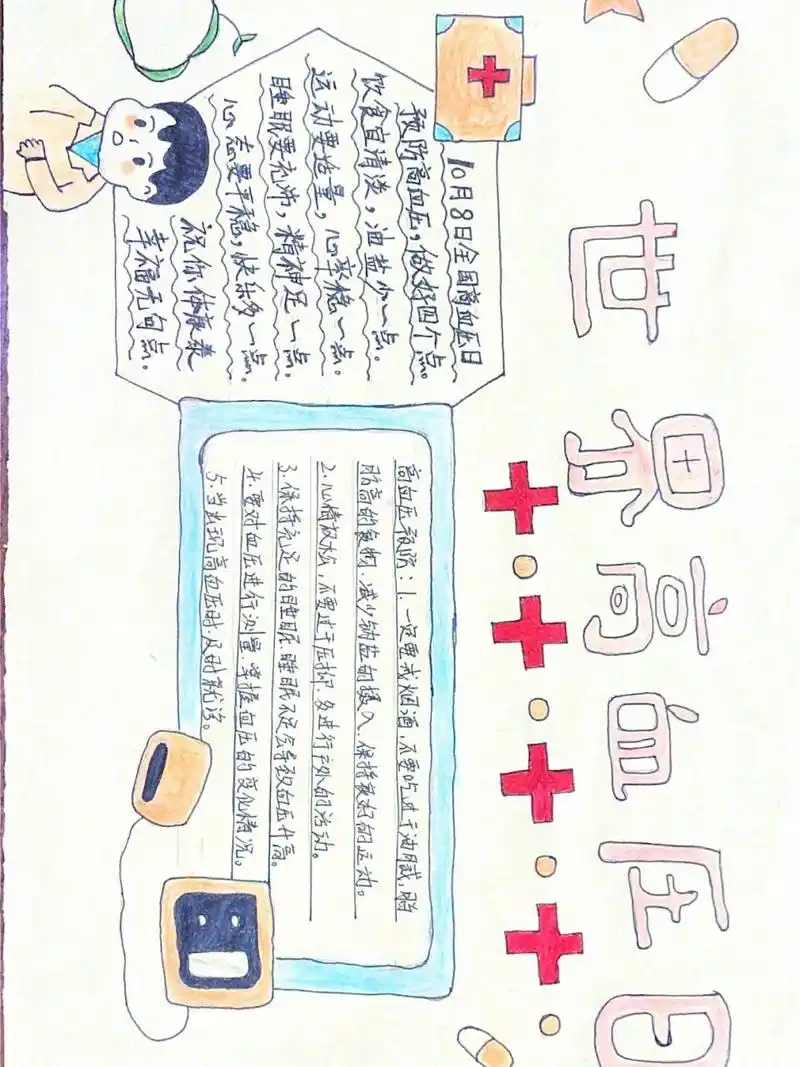 世界高血压日
10月8日全国高血压日
预防高血压，做好四个点。
饮食宜清淡，油盐少一点。
运动要适量，心率稳一点。
睡眠要充沛，精神足一点。
心态要平稳，快乐多一点。
祝你体康泰
幸福无句点。
高血压预防：1.一定要戒烟酒，不要吃过于油腻，脂
肪高的食物.减少钠盐的摄入.保持良好的运动。
2.心情放松，不要过于压抑.多进行户外的活动。
3.保持充足的睡眠.睡眠不足会导致血压升高。
4.要对血压进行测量.掌握血压的变化情况。
5.当出现高血压时.及时就诊。